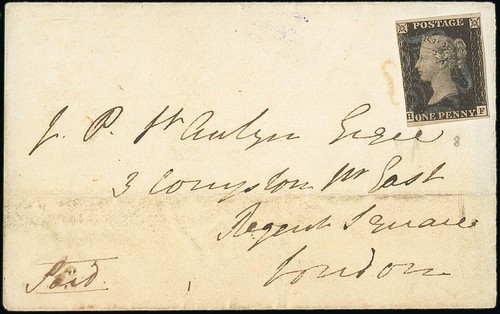 POSTAGE
ONE PENNY
F
J. P. St Aubyn Esqre
3 Compton St East
Regent Square
London
Paid
8